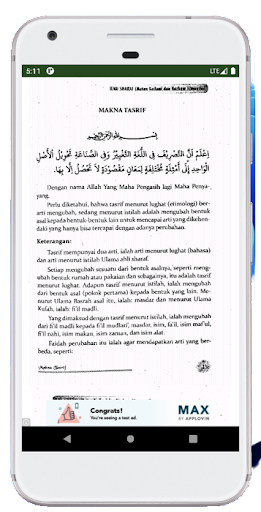 5:11
LTE
ILMU SHARAF (Matan Kailani dan Nazham
MAKNA TASRIF
إِعْلَمْ أَنَّ التَّصْرِيْفَ فِى اللُّغَةِ التَّغْيِيْرُ وَفِى الصِّنَاعَةِ تَحْوِيْلُ الْأَصْلِ
الْوَاحِدِ إِلَى أَمْثِلَةٍ مُخْتَلِفَةٍ لِمَعَانٍ مَقْصُوْدَةٍ لَا تَحْصُلُ إِلَّا بِهَا.
Dengan nama Allah Yang Maha Pengasih lagi Maha Penya-
yang.
Perlu diketahui, bahwa tasrif menurut lughat (etimologi) ber-
arti mengubah, sedang menurut istilah adalah mengubah bentuk
asal kepada bentuk-bentuk lain untuk mencapai arti yang dikehen-
daki yang hanya bisa tercapai dengan adanya perubahan.
Keterangan:
Tasrif mempunyai dua arti, ialah arti menurut lughat (bahasa)
dan arti menurut istilah Ulama ahli sharaf.
Setiap mengubah sesuatu dari bentuk asalnya, seperti meng-
ubah bentuk rumah atau pakaian dan sebagainya, itu adalah tasrif
menurut lughat. Adapun tasrif menurut istilah, ialah mengubah
dari bentuk asal (pokok pertama) kepada bentuk yang lain. Me-
nurut Ulama Basrah asal itu, ialah: masdar dan menurut Ulama
Kufah, ialah: fi'il madli.
Yang dimaksud dengan tasrif menurut istilah, ialah mengubah
dari fi'il madli kepada fi'il mudlari', masdar, isim, fa'il, isim maf'ul,
fi'il nahi, isim makan, isim zaman, dan isim alat.
Faidah perubahan itu ialah agar mendapatkan arti yang ber-
beda, seperti:
(Matan
Congrats!
You're seeing a test ad.
MAX
BY APPLOVIN